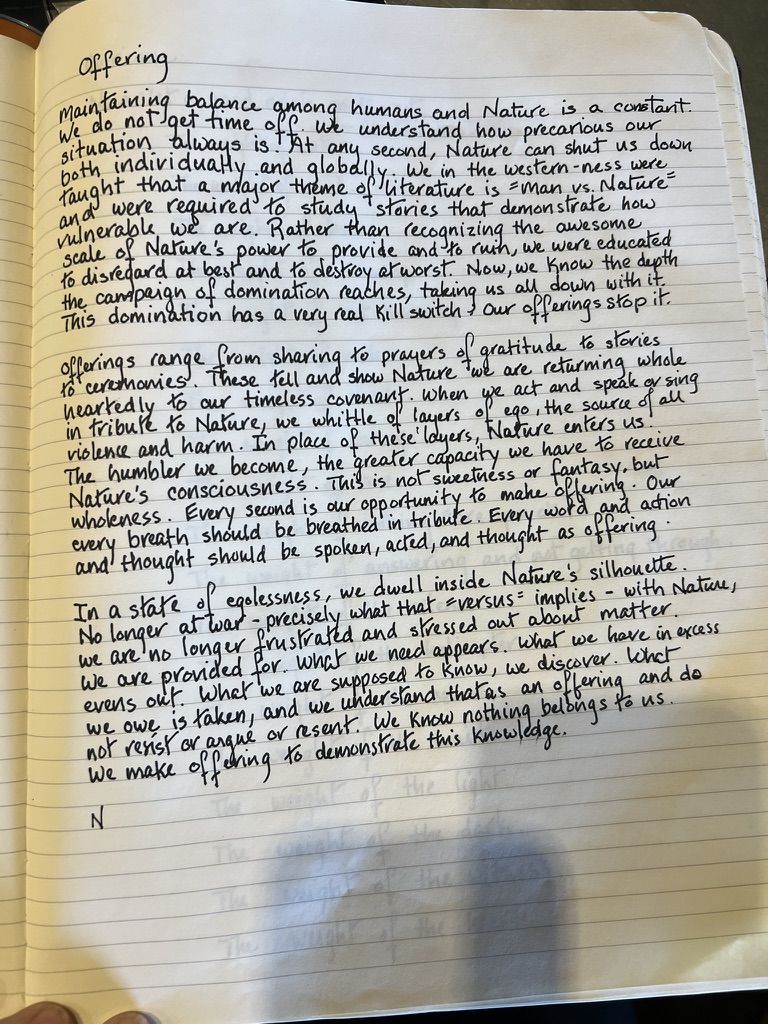 Offering
Maintaining balance among humans and Nature is a constant.
We do not get time off. We understand how precarious our
situation always is. At any second, Nature can shut us down
both individually and globally. We in the western-ness were
taught that a major theme of literature is "man vs. Nature"
and were required to study stories that demonstrate how
vulnerable we are. Rather than recognizing the awesome
scale of Nature's power to provide and to ruin, we were educated
to disregard at best and to destroy at worst. Now, we know the depth
the campaign of domination reaches, taking us all down with it.
This domination has a very real kill switch: our offerings stop it.
Offerings range from sharing to prayers of gratitude to stories
to ceremonies. These tell and show Nature we are returning whole
heartedly to our timeless covenant. When we act and speak or sing
in tribute to Nature, we whittle of layers of ego, the source of all
violence and harm. In place of these layers, Nature enters us.
The humbler we become, the greater capacity we have to receive
Nature's consciousness. This is not sweetness or fantasy, but
wholeness. Every second is our opportunity to make offering. Our
every breath should be breathed in tribute. Every word and action
and thought should be spoken, acted, and thought as offering.
In a state of egolessness, we dwell inside Nature's silhouette.
No longer at war - precisely what that "versus" implies - with Nature,
we are no longer frustrated and stressed out about matter.
We are provided for. What we need appears. What we have in excess
evens out. What we are supposed to know, we discover. What
we owe is taken, and we understand that as an offering and do
not resist or argue or resent. We know nothing belongs to us.
We make offering to demonstrate this knowledge.
N
The weight of answering and not getting through.
The weight of the light.
The weight of the dark.
The weight of the
The weight of the